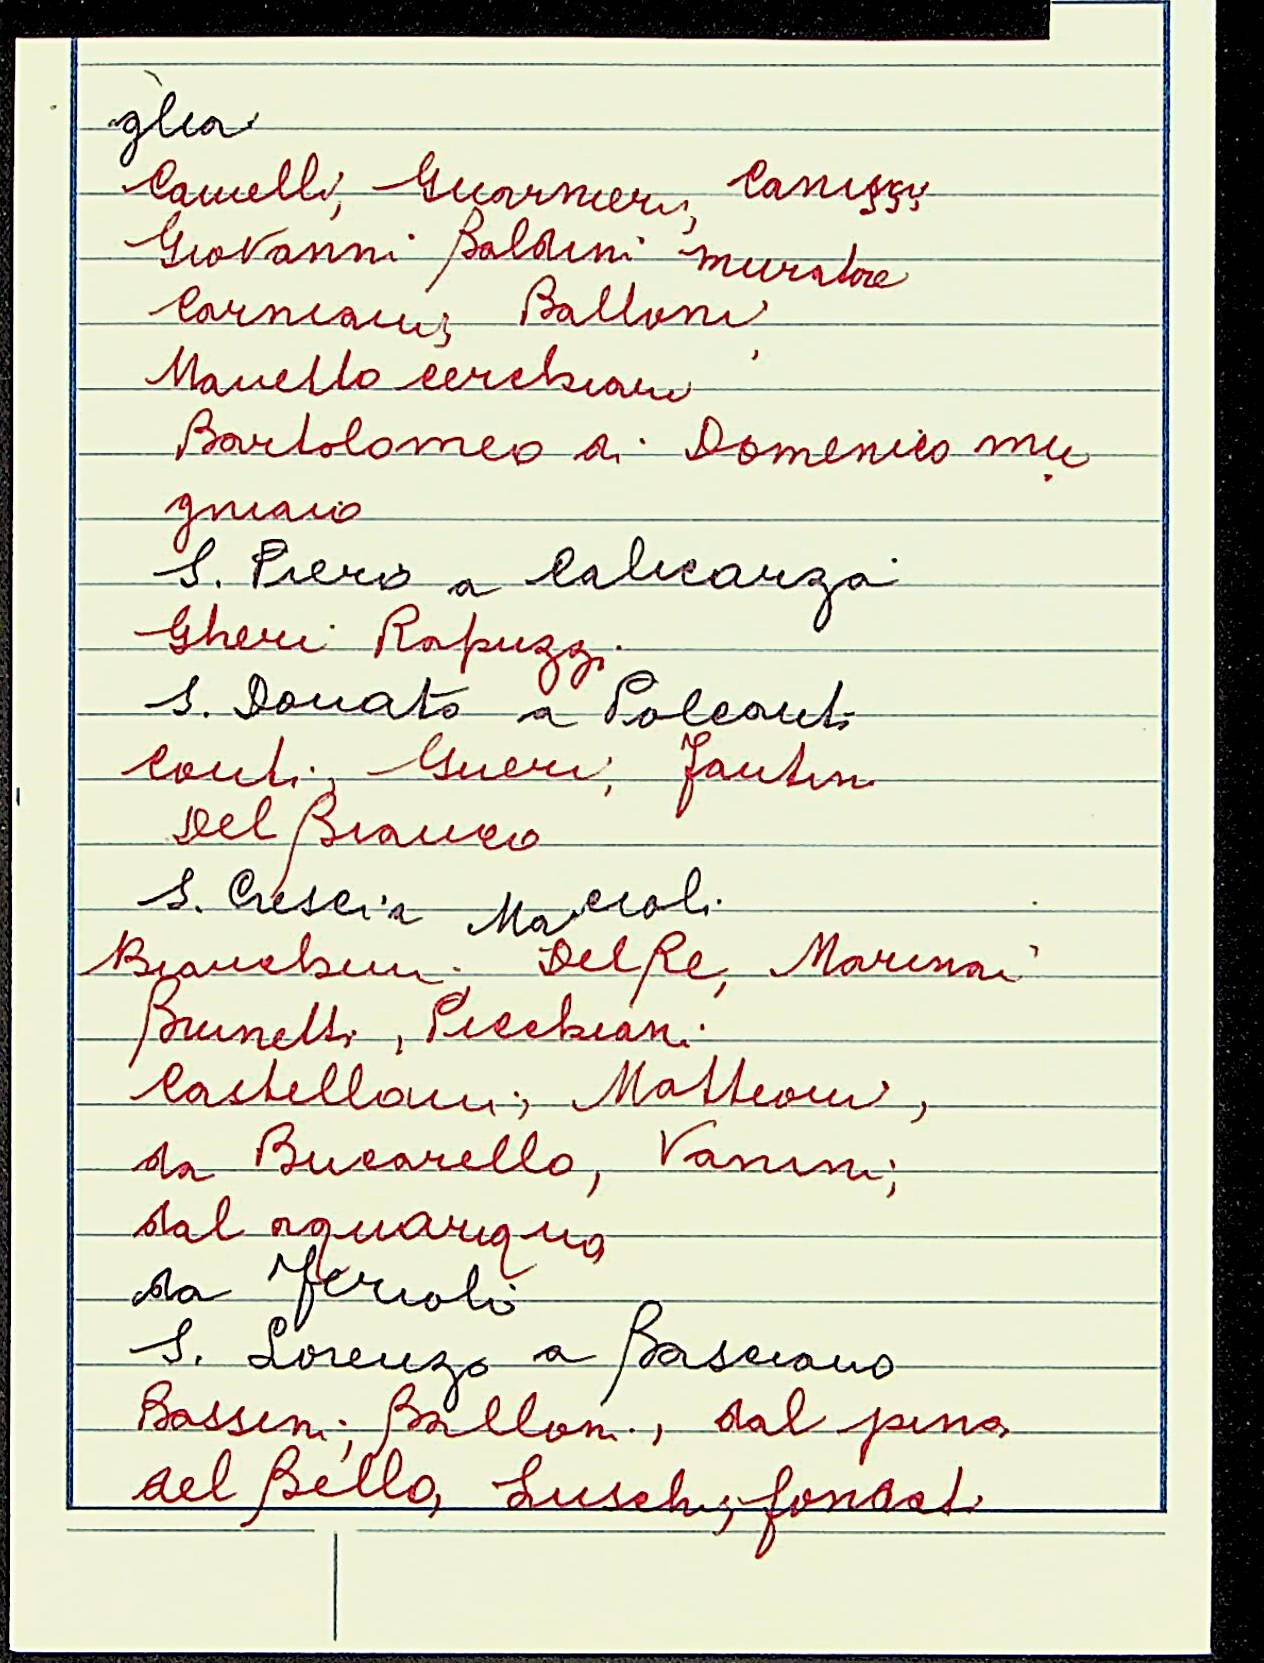 glia
Camelli, Guarnieri, Canizzi
Giovanni Baldini muratore
Carniani, Balloni,
Manetto cerchiaio
Bartolomeo di Domenico mu
gniaio
S. Piero a Calicarza
Gheri Rapuzzi
S. Donato a Polcanto
Conti, Guerri, Fantini
Del Bianco
S. Cresci a Macioli
Bianchini. Del Re, Marinai
Brunetti, Picchiani
Castellani, Matteoni,
da Bucarello, Vanini,
dal aquariqua
da Ferioli
S. Lorenzo a Basciano
Bassini, Balloni, dal pino
del Bello, Luschi, fondati